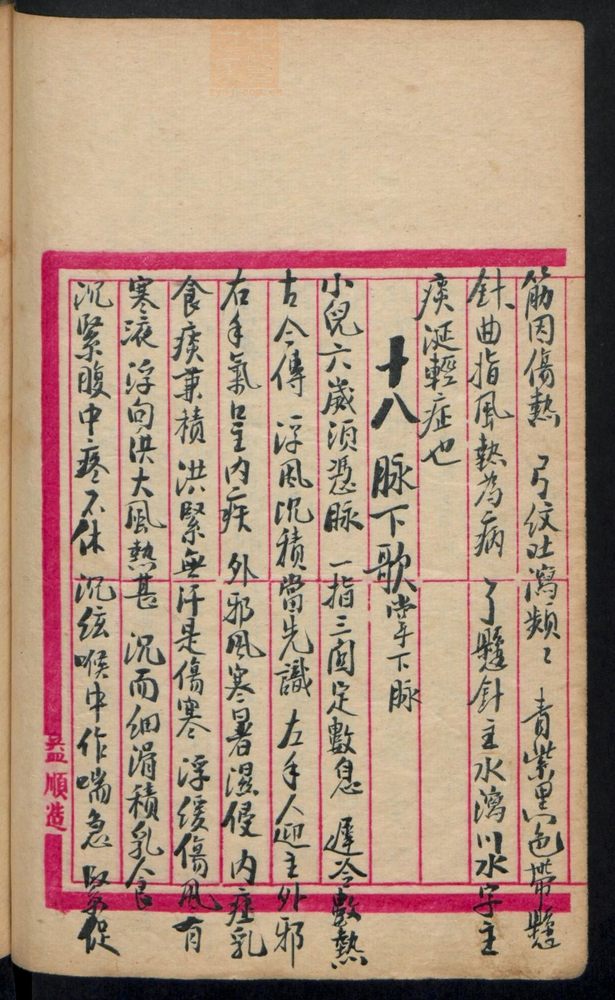 筋因傷熱 弓紋吐瀉頻〻 青紫黑色帶懸
針 曲指風熱為病 了懸針主水瀉川水字主
痰涎輕症也
十八 脉下歌 掌下脉
小兒六歲須憑脉 一指三関定數息 遲冷數熱
古今傳 浮風沉積當先識 左手人迎主外邪
右手氣口主內疾 外邪風寒暑濕侵 內症乳
食痰兼積 洪緊無汗是傷寒 浮緩傷風有
寒液 浮向洪大風熱甚 沉而細滑積乳食
沉緊腹中疼不休 沉弦喉中作喘急 緊促
益順造